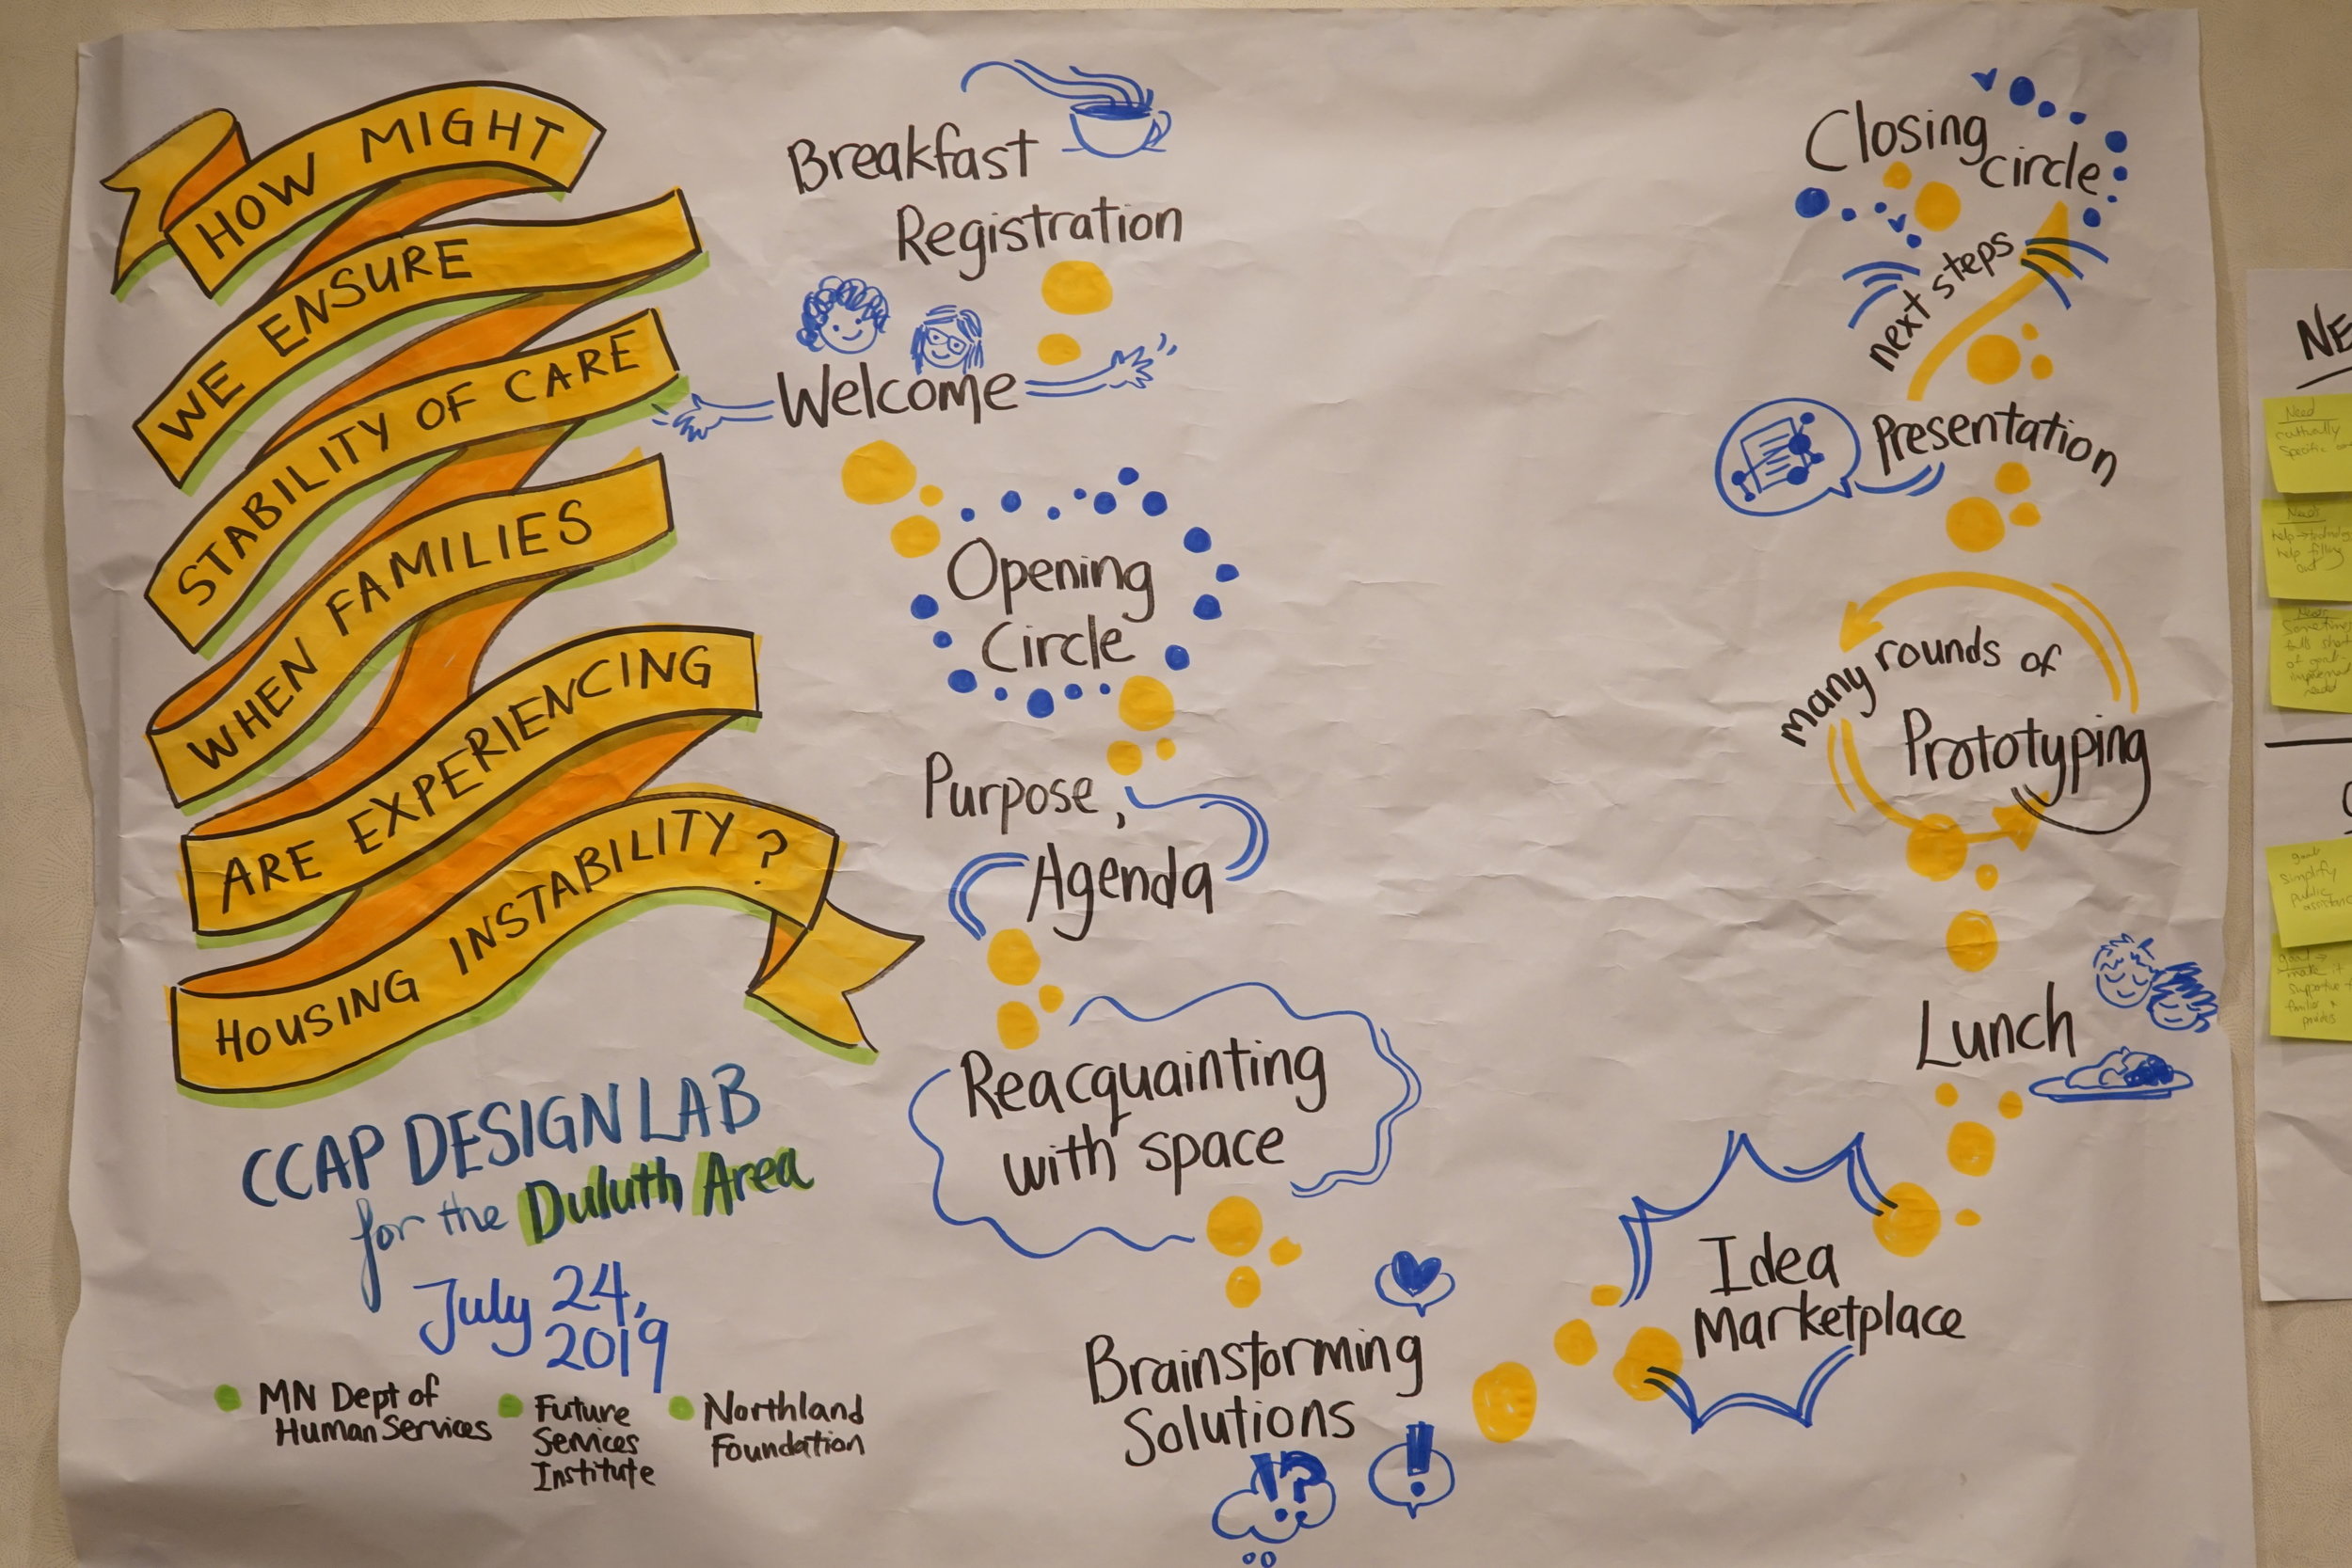 HOW MIGHT
WE ENSURE
STABILITY OF CARE
WHEN FAMILIES
ARE EXPERIENCING
HOUSING INSTABILITY?
CCAP DESIGN LAB
for the Duluth Area
July 24,
2019
MN Dept of
Human Services
Future
Services
Institute
Northland
Foundation
Breakfast
Registration
Welcome
Opening
Circle
Purpose,
Agenda
Reacquainting
with space
Brainstorming
Solutions
!?
!
Idea
Marketplace
Lunch
many rounds of
Prototyping
Presentation
next steps
Closing
circle
NE
Need
culturally
specific
Needs
help
help filling
out
Needs
Sometimes
goal
simplify
public
goal →
make it